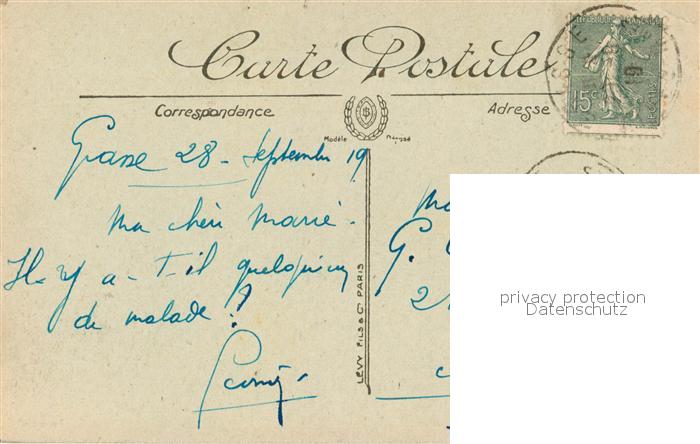 Carte Postale
Correspondance
Adresse
15c
POSTES
Modèle Déposé
Grasse 28 - Septembre 19
Ma chère Marie.
Il y a-t-il quelqu'un
de malade?
LÉVY FILS & Cie PARIS
G.
2
privacy protection
Datenschutz